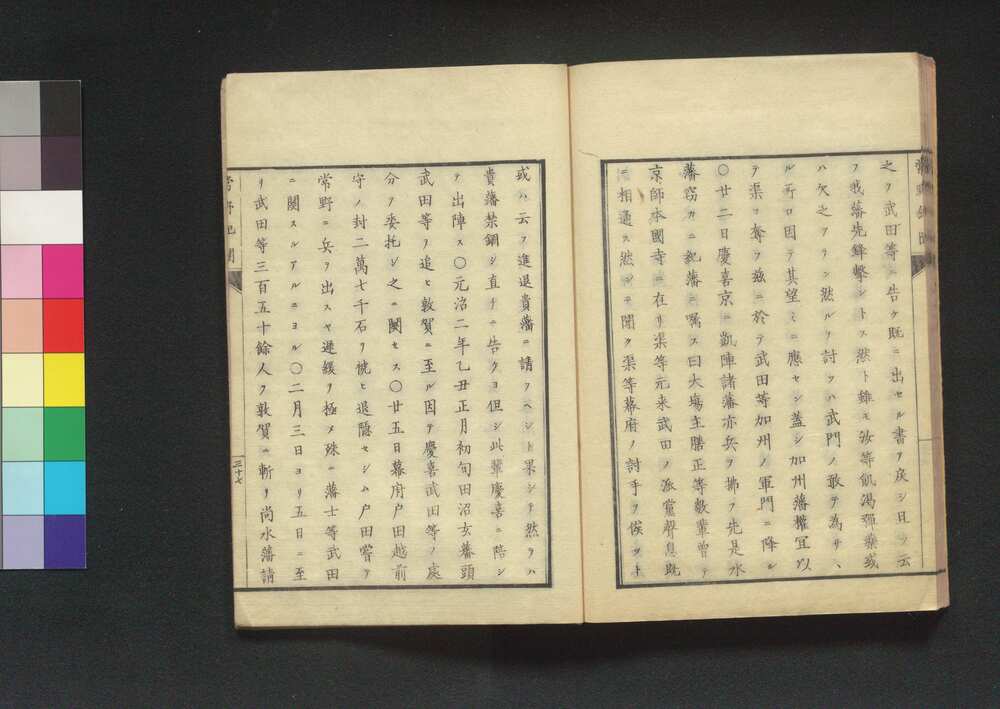 之ヲ武田等ニ告ク既ニ出セル書ヲ戻シ且ツ云
フ我藩先鋒撃ントス然ト雖モ汝等飢渇弾藥或
ハ欠之アラン然ルヲ討ツハ武門ノ敢テ為サヽ
ル所ロ因テ其望ミニ應セン蓋シ加州藩權宜以
テ渠ヲ奪フ茲ニ於テ武田等加州ノ軍門ニ降ル
〇廿二日慶喜京ニ凱陣諸藩亦兵ヲ拂フ先是水
藩窃カニ紀藩ニ嘱ス曰大塲主膳正等數輩曽テ
京師本國寺ニ在リ渠等元来武田ノ派黨聲息既
ニ相通ス然シテ聞ク渠等幕府ノ討手ヲ俟ツト
或ハ云フ進退貴藩ニ請フヘシト果シテ然ラハ
貴藩禁錮シ直チニ告クヨ但シ此輩慶喜ニ陪シ
テ出陣ス〇元治二年乙丑正月初旬田沼玄蕃頭
武田等ヲ追ヒ敦賀ニ至ル因テ慶喜武田等ノ處
分ヲ委托シ之ニ関セス〇廿五日幕府戸田越前
守ノ封二萬七千石ヲ恍ヒ退隠セシム戸田嘗テ
常野ニ兵ヲ出スヤ遅緩ヲ極メ殊ニ藩士等武田
ニ関スルアルニヨル〇二月三日ヨリ五日ニ至
リ武田等三百五十餘人ヲ敦賀ニ斬リ尚水藩請
三十七